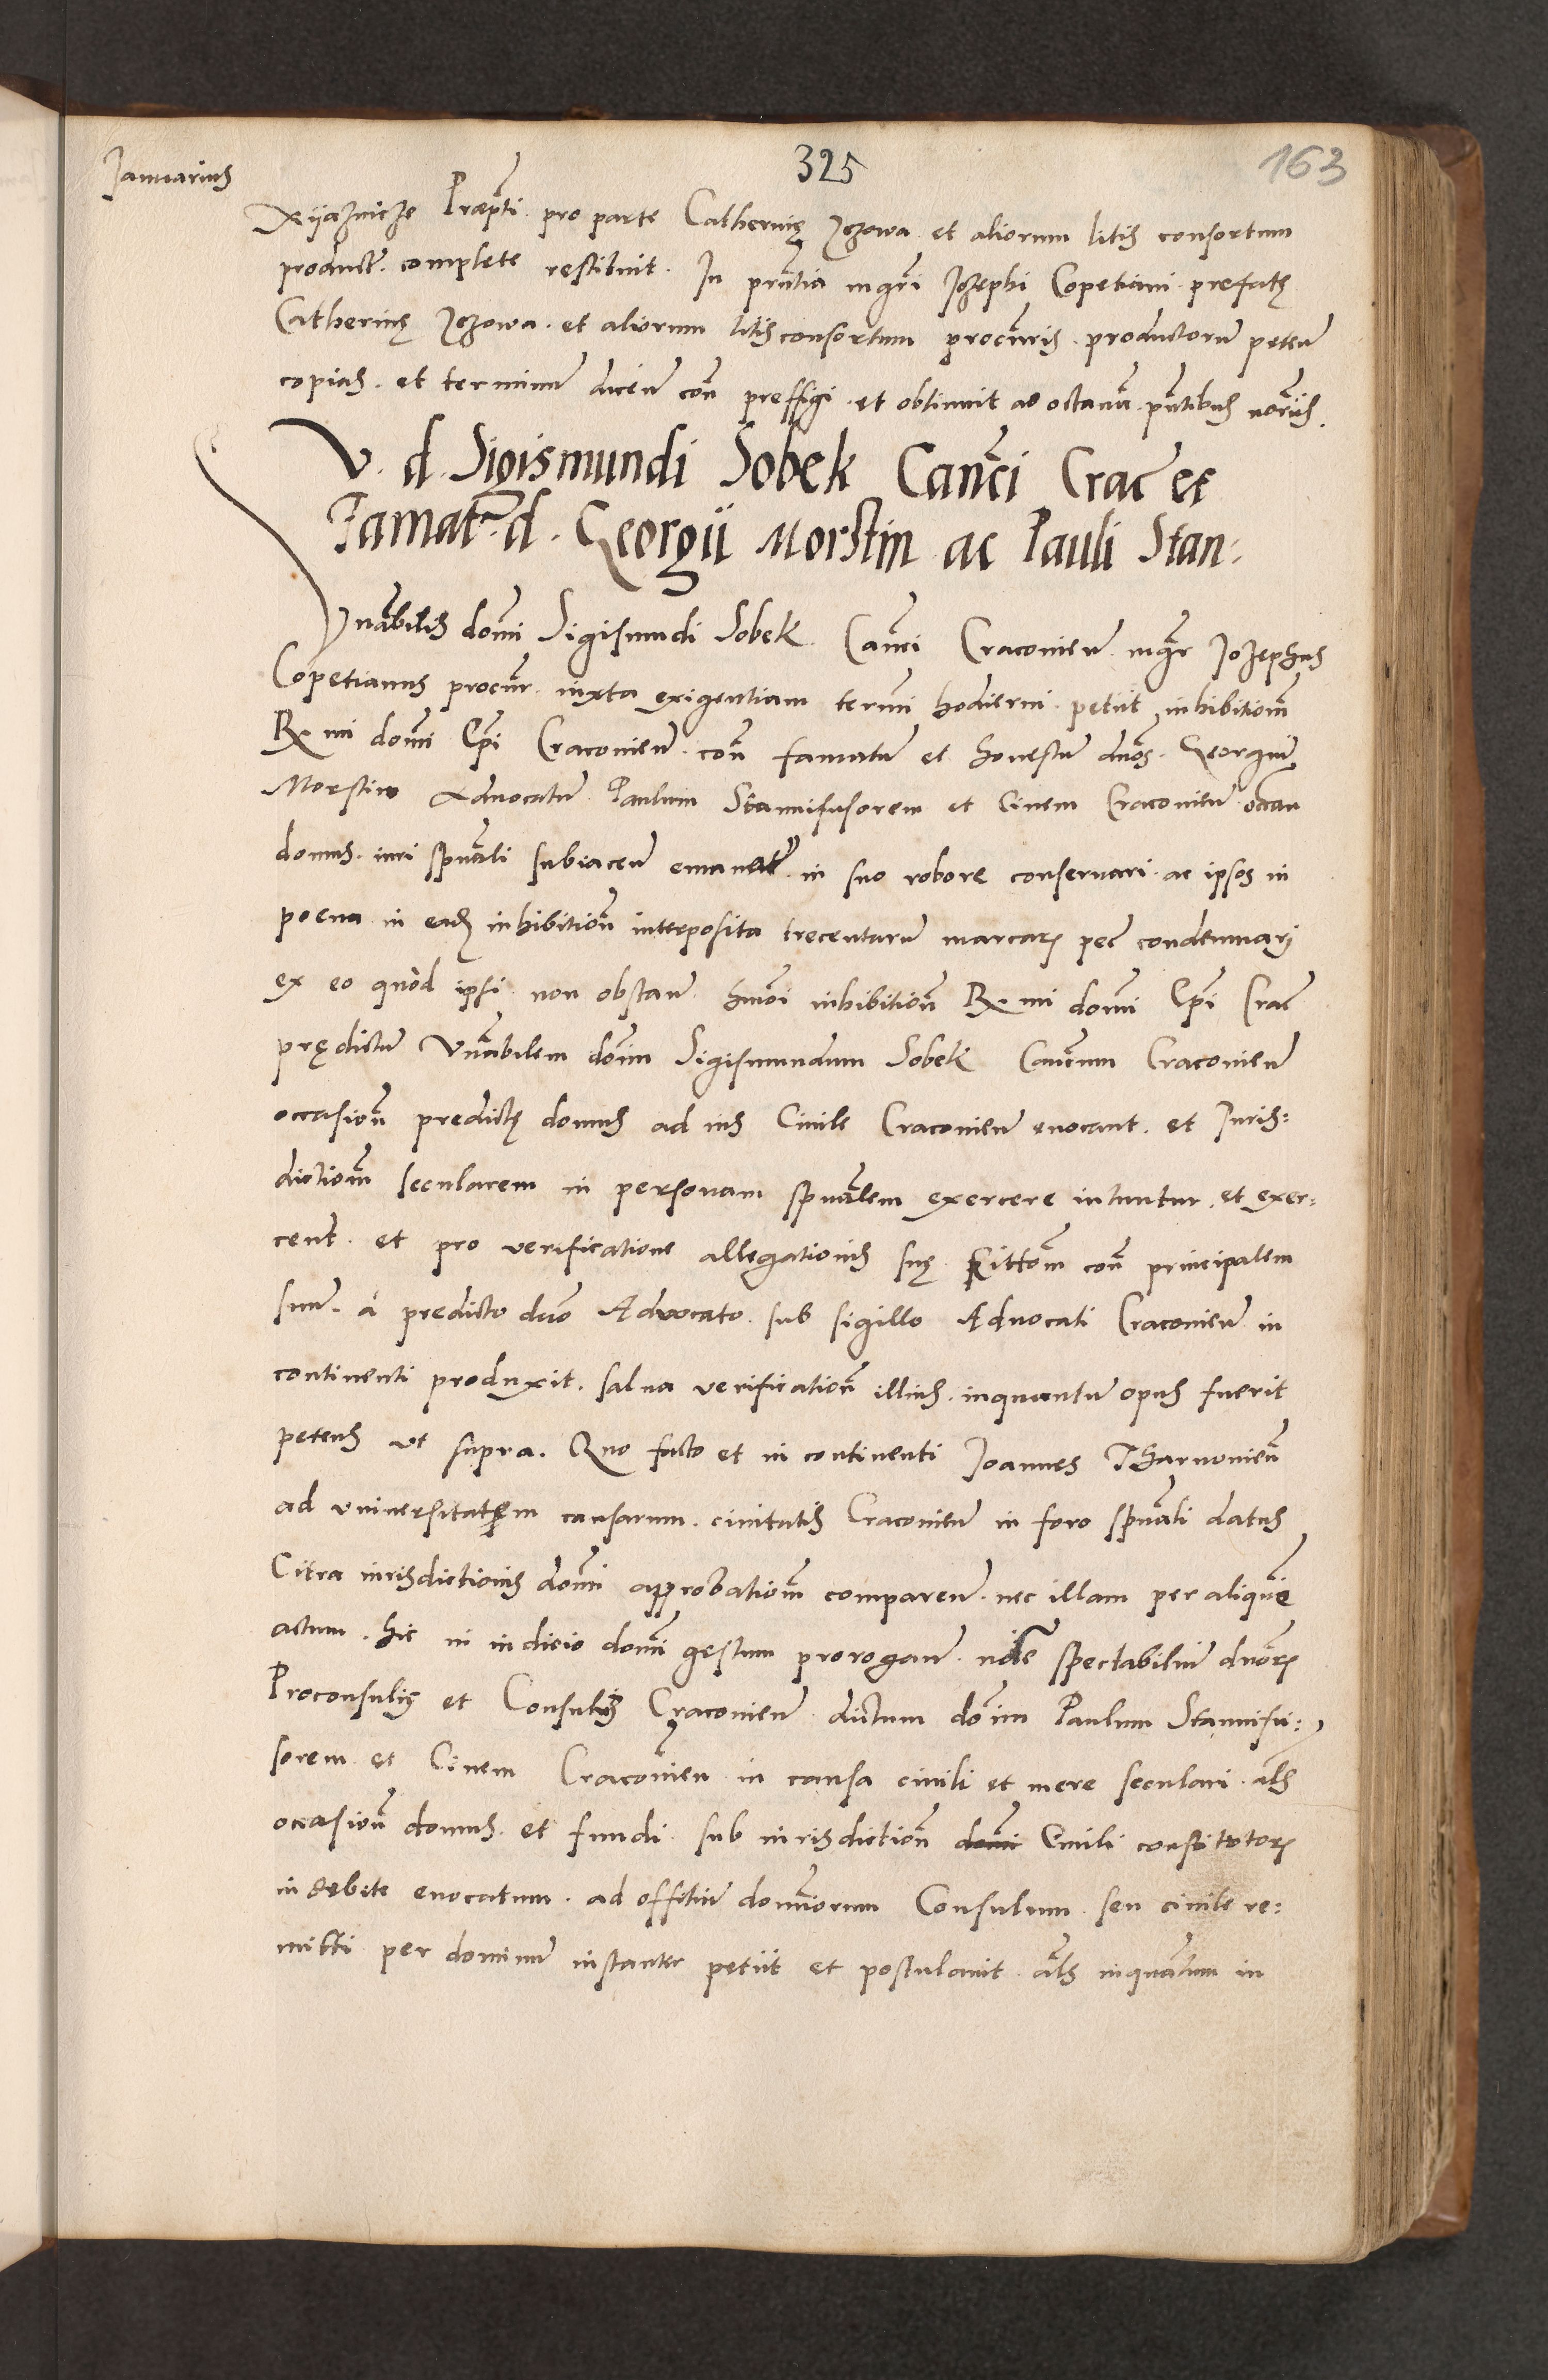 325
163
Januarius
Xijaznicze Præpti pro parte Catherinę Jczowa et aliorum litis consortum
product complete restituit. In pntia mgri Jozephi Copetiani prefatę
Catherinę Jczowa et aliorum litis consortum procuris productorū peten̄
copias. et terminū dicen̄ con̄ preffigi et obtinuit ad octauā pntibus
V. d. Sigismundi Sobek Canci Crac et
Famat. d. Georgii Morstin ac Pauli Stan:
Vnabilis domi Sigismundi Sobek Canci Cracouien̄ mgr Jozephus
Copetianus procur iuxta exigentiam termi hodierni petiit inhibitiom
Rmi domi Epi Cracouien̄ con̄ famatū et honestū dnos Georgiū
Morstin Aduocatū Paulum Stannifusorem et Ciuem Cracouien̄ occan
domus iuri spuali subiacen̄ emanat in suo robore conseruari ac ipsos in
poena in eadē inhibitione interposita trecentarū marcarū pec condemnari
ex eo quod ipsi non obstan̄ hmoi inhibition̄ Rmi domi Epi Crac
prędictū Vnabilem dom̄m Sigismundum Sobek Cancum Cracouien̄
occasion̄ predictę domus ad ius Ciuile Cracouien̄ euocant et Juris:
dictiom̄ secularem in personam spualem exercere intuntur et exer:
cent et pro verificatione allegationis suę citiom̄ con̄ principalem
suū a predicto dno Aduocato sub sigillo Aduocati Cracouien̄ in
continenti produxit. salua verification̄ illius inquantū opus fuerit
petens vt supra. Quo facto et in continenti Joannes Tharnouien̄
ad vniuersitatem causarum ciuitatis Cracouien̄ in foro spuali datus
Citra iurisdictionis domi approbatiom̄ comparen̄ nec illam per aliquē
actum hic in iudicio domi gestum prorogan̄ noīe spectabiliū dnorū
Proconsulis et Consulū Cracouien̄ dictum dom̄m Paulum Stannifu:
sorem et Ciuem Cracouien̄ in causa ciuili et mere seculari als
occasion̄ domus et fundi sub iurisdiction̄ domi Ciuili constitutorū
indebite euocatum ad offitiū dominorum Consulum seu ciuile re:
mitti per dominū instanter petiit et postulauit als inquantum in